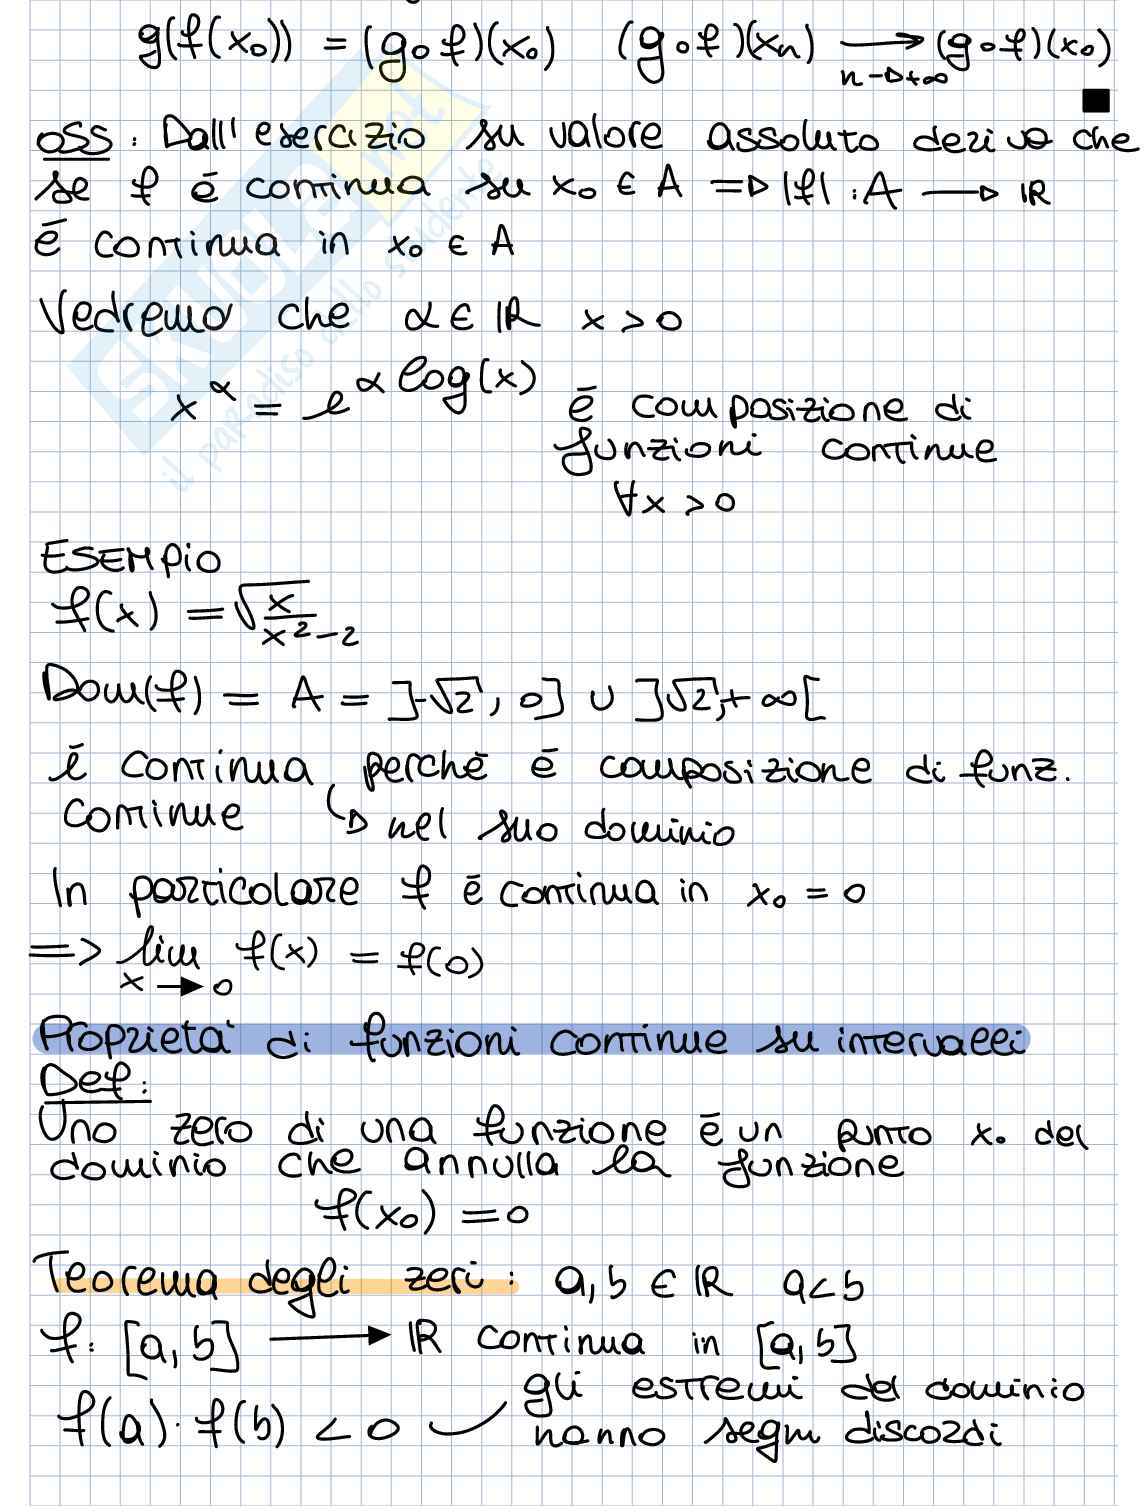 g(f(x₀)) = (g∘f)(x₀) (g∘f)(xₙ) ⟶ (g∘f)(x₀)
n→+∞
oss: Dall'esercizio su valore assoluto deriva che
se f è continua su x₀ ∈ A => |f| : A ⟶ ℝ
è continua in x₀ ∈ A
Vedremo che α ∈ ℝ x > 0
x^α = e^(α log(x)) è composizione di
funzioni continue
∀x > 0
ESEMPIO
f(x) = √(x/(x²-2))
Dom(f) = A = ]-√2, 0] ∪ ]√2,+∞[
è continua perchè è composizione di funz.
continue ↳ nel suo dominio
In particolare f è continua in x₀ = 0
=> lim f(x) = f(0)
x → 0
Proprietà di funzioni continue su intervalli
Def:
Uno zero di una funzione è un punto x₀ del
dominio che annulla la funzione
f(x₀) = 0
Teorema degli zeri: a, b ∈ ℝ a<b
f: [a, b] ⟶ ℝ continua in [a, b]
f(a)·f(b) < 0 gli estremi del dominio
hanno segni discordi
SKUOLA.net
il paradiso dello studente